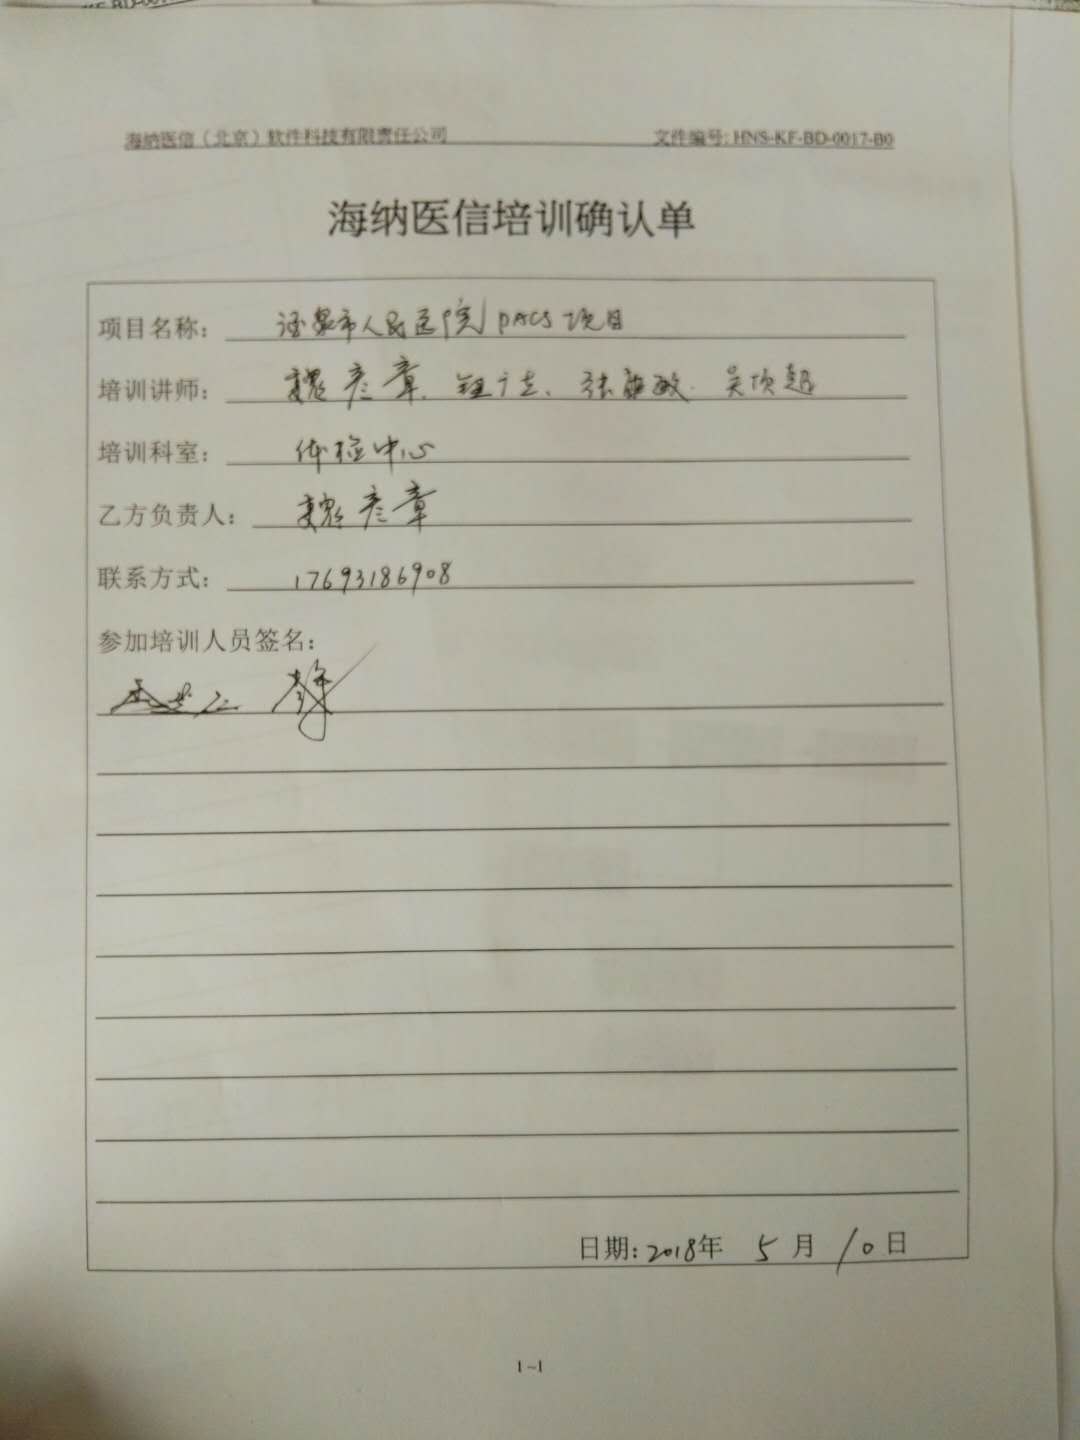 海纳医信（北京）软件科技有限责任公司 文件编号: HNS-KF-BD-0017-B0
海纳医信培训确认单
项目名称： 酒泉市人民医院PACS项目
培训讲师： 魏彦章、 张 敏、 吴 超
培训科室： 体检中心
乙方负责人： 魏彦章
联系方式： 17693186908
参加培训人员签名：
日期: 2018年 5 月 10 日
1~1